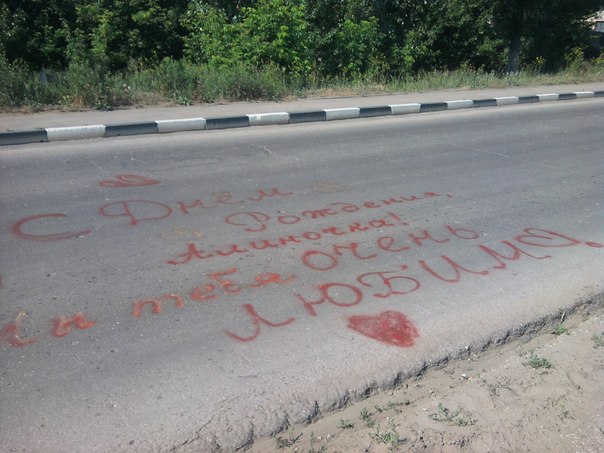 С Днём
Рождения,
Алиночка!
Ми тебя очень
Любимо